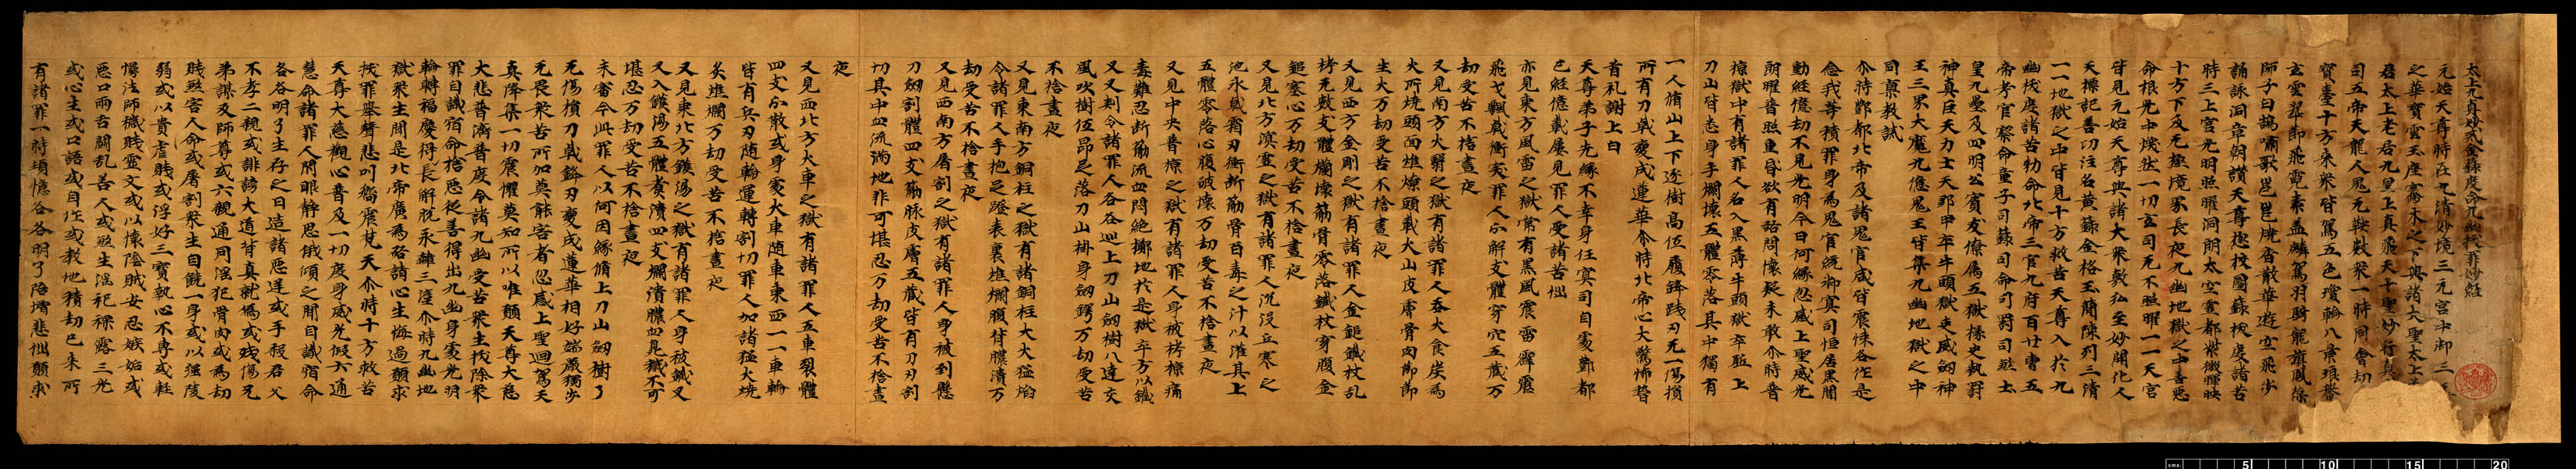 太上真妙戒金籙度命九幽拔罪妙經
元始天尊時在九清妙境三元宮中御三
之華寶雲玉座騫木之下與諸大聖太上
君太上老君九皇上真飛天十聖妙行真
司五帝天龍人鬼无鞅數衆一時同會劫
寶臺十方來衆皆駕五色瓊輪八景琅轝
玄雲翠軿飛霓素蓋麟駕羽騎龍旗鳳篆
師子白鵠嘯歌邕邕燒香散華遊空飛步
誦詠洞章朝讚天尊趍校圖籙拔度諸苦
時三上宮光明照曜洞明太空靈都紫微暉映
十方下及无極境界長夜九幽地獄之中善惡
命根光中煥然一切玄司无不照曜一一天宮
皆見元始天尊與諸大衆敷弘至妙開化人
天標記善功注名黄籙金格玉簡陳列三清
一一地獄之中皆見十方救苦天尊入於九
幽拔度諸苦勑命北帝三官九府百廿曹五
帝考官察命童子司錄司命司罸司煞土
皇九壘及四明公賔友僚屬五獄㨾史執罸
神真巨天力士天鄒甲卒牛頭獄吏威劒神
王三界大魔九億鬼王皆集九幽地獄之中
同禀教試
尒時酆都北帝及諸鬼官咸皆震悚各作是
念我等積罪身爲鬼官統御冥司恒居黑闇
動經億劫不見光明今日何緣忽感上聖威光
朗曜普照重昏欲有諮問懷疑未敢尒時普
掠獄中有諸罪人名入黑薄牛頭獄卒駈上
刀山皆悉身手爛壞五體零落其中獨有
一人循山上下逐樹高伍履鋒踐刃无一傷損
所有刀戟變成蓮華尒時北帝心大驚怖稽
首礼謝上白
天尊弟子先緣不幸身任冥司自處酆都
已經億載屢見罪人受諸苦惱
亦見東方風雷之獄常有黑風震雷霹靂
飛戈飄戟衝突罪人尒解支體穿穴五藏万
劫受苦不捨晝夜
又見南方火翳之獄有諸罪人吞火食炭爲
火所燒頭面燋燎頭戴火山皮膚骨肉節節
生火万劫受苦不捨晝夜
又見西方金剛之獄有諸罪人金鎚鐵杖乱
拷无數支體爛壞筋骨零落鐵杖穿腹金
鎚塞心万劫受苦不捨晝夜
又見北方溟零之獄有諸罪人沉没丘寒之
池永戟霜刃衝斷筋骨百毒之汁以灌其上
五體零落心腹破壞万劫受苦不捨晝夜
又見中央普掠之獄有諸罪人身被拷掠痛
毒難忍斷筋流血悶絶擲地於是獄卒方以鐵
叉又刾令諸罪人各各𨑰上刀山劒樹八達交
風吹樹伍昂足落刀山掛身劒鍔万劫受苦
不捨晝夜
又見東南方銅柱之獄有諸銅柱大火猛焰
令諸罪人手抱足蹬表裏燋爛腹背膿潰万
劫受苦不捨晝夜
又見西南方屠割之獄有諸罪人身被到懸
刀劒割體四支筋脉皮膚五藏皆有刀刃割
切其中血流滿地非可堪忍万劫受苦不捨晝
夜
又見西北方火車之獄有諸罪人五車裂體
四支尒散或身處火車隨車東西一一車輪
皆有兵刃随輪運轉割切罪人加諸猛火燒
炙燋爛万劫受苦不捨晝夜
又見東北方鑊湯之獄有諸罪人身被鐵叉
叉入鑊湯五體煮潰四支爛潰膿血臭穢不可
堪忍万劫受苦不捨晝夜
未審今此罪人以何因緣循上刀山劒樹了
无傷損刀戟鋒刃變成蓮華相好端嚴獨步
无畏衆苦所加莫能害者忽感上聖迴駕天
真降集一切震懼莫知所以唯願天尊大慈
大悲普濟普度令諸九幽受苦衆生拔除衆
罪自識宿命捨惡從善得出九幽身處光明
輪轉福慶得長解脱永離三塗尒時九幽地
獄衆生聞是北帝廣爲啓請心生悔過願求
拔罪舉聲悲叫㣲震梵天尒時十方救苦
天尊大慈觀心普及一切度身威光假六通
慧命諸罪人閉眼静思俄傾之間自識宿命
各各明了生存之日造諸惡逆或手殺君父
不孝二親或誹謗大道背真就僞或殘傷兄
弟謀及師尊或六親通同淫犯骨肉或爲劫
賊煞害人命或屠割衆生自饒一身或以强陵
弱或以貴虐賤或浮好三寶執心不專或輕
慢法師穢賤靈文或以懷陰賊女忍嫉妬或
惡口兩舌鬪乱善人或煞生淫祀裸露三光
或心生或口語或自作或教他積劫已来所
有諸罪一時頃憶各各明了陷壔悲惱願求